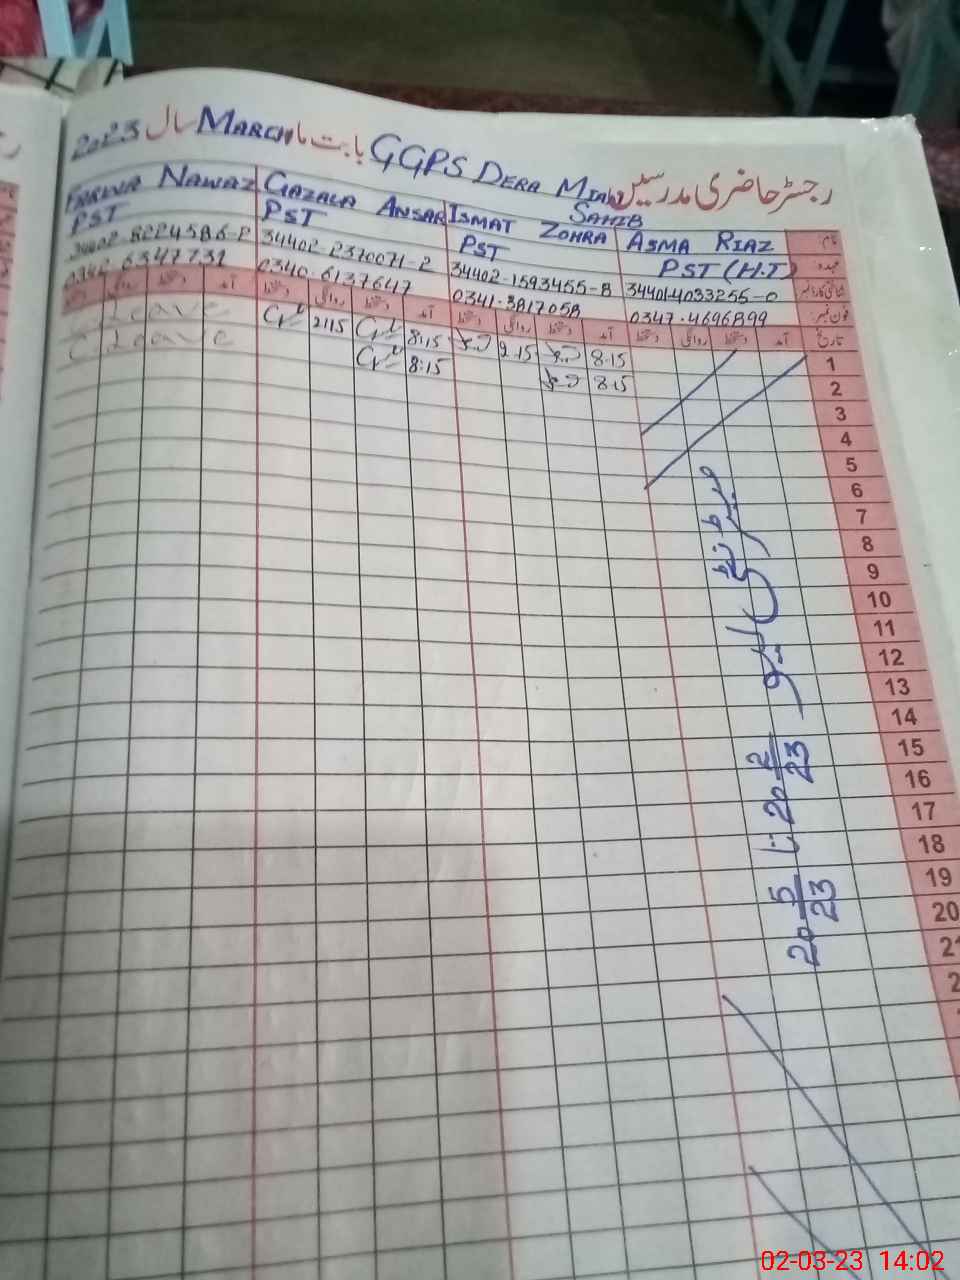 رجسٹر حاضری مدرسین GGPS DERA MIAN SAHIB بابت ماہ MARCH سال 2023
نام ASMA RIAZ ISMAT ZOHRA GAZALA ANSAR FARWA NAWAZ
عہدہ PST (H.T) PST PST PST
شناختی کارڈ نمبر 34401-4033255-0 34402-1593455-8 34402-2370071-2 34402-8224586-2
فون نمبر 0347-4696899 0341-3817058 0340-6137647 0342-6347731
تاریخ آمد دستخط روانگی دستخط آمد دستخط روانگی دستخط آمد دستخط روانگی دستخط آمد دستخط روانگی دستخط
1 8.15 2.15 8:15 2:15 C Leave
2 8.15 8:15 C Leave
3
4
5
6
7
8
9
10
11
12
13
14
15
16
17
18
19
20
21
میٹرنٹی لیو 20 2/23 تا 20 5/23
02-03-23 14:02